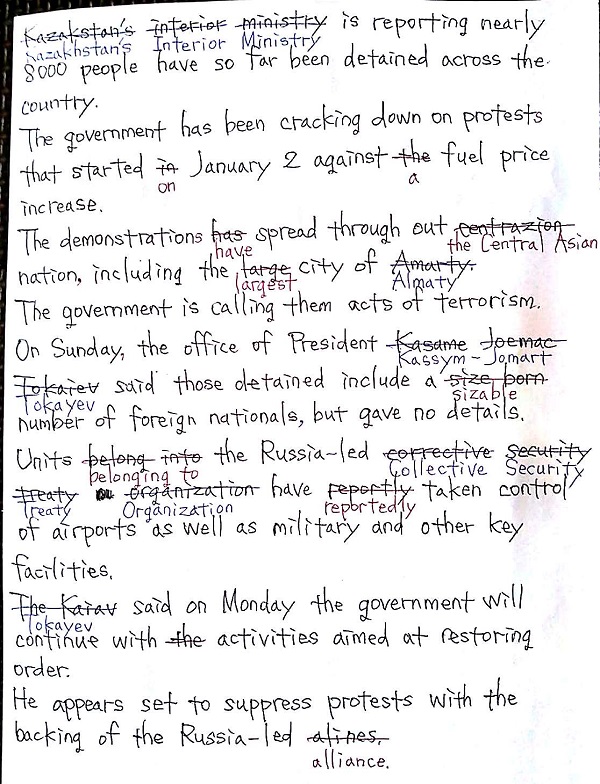 Kazakstan's interior ministry is reporting nearly
Kazakhstan's Interior Ministry
8000 people have so far been detained across the
country.
The government has been cracking down on protests
that started in January 2 against the fuel price
on a
increase.
The demonstrations has spread through out centrazion
have the Central Asian
nation, including the large city of Amarty.
largest Almaty
The government is calling them acts of terrorism.
On Sunday, the office of President Kasame Joemac
Kassym-Jomart
Tokaiev said those detained include a size born
Tokayev sizable
number of foreign nationals, but gave no details.
Units belong into the Russia-led corrective security
belonging to Collective Security
treaty organization have reportly taken control
Treaty Organization reportedly
of airports as well as military and other key
facilities.
The Karav said on Monday the government will
Tokayev
continue with the activities aimed at restoring
order.
He appears set to suppress protests with the
backing of the Russia-led alines.
alliance.